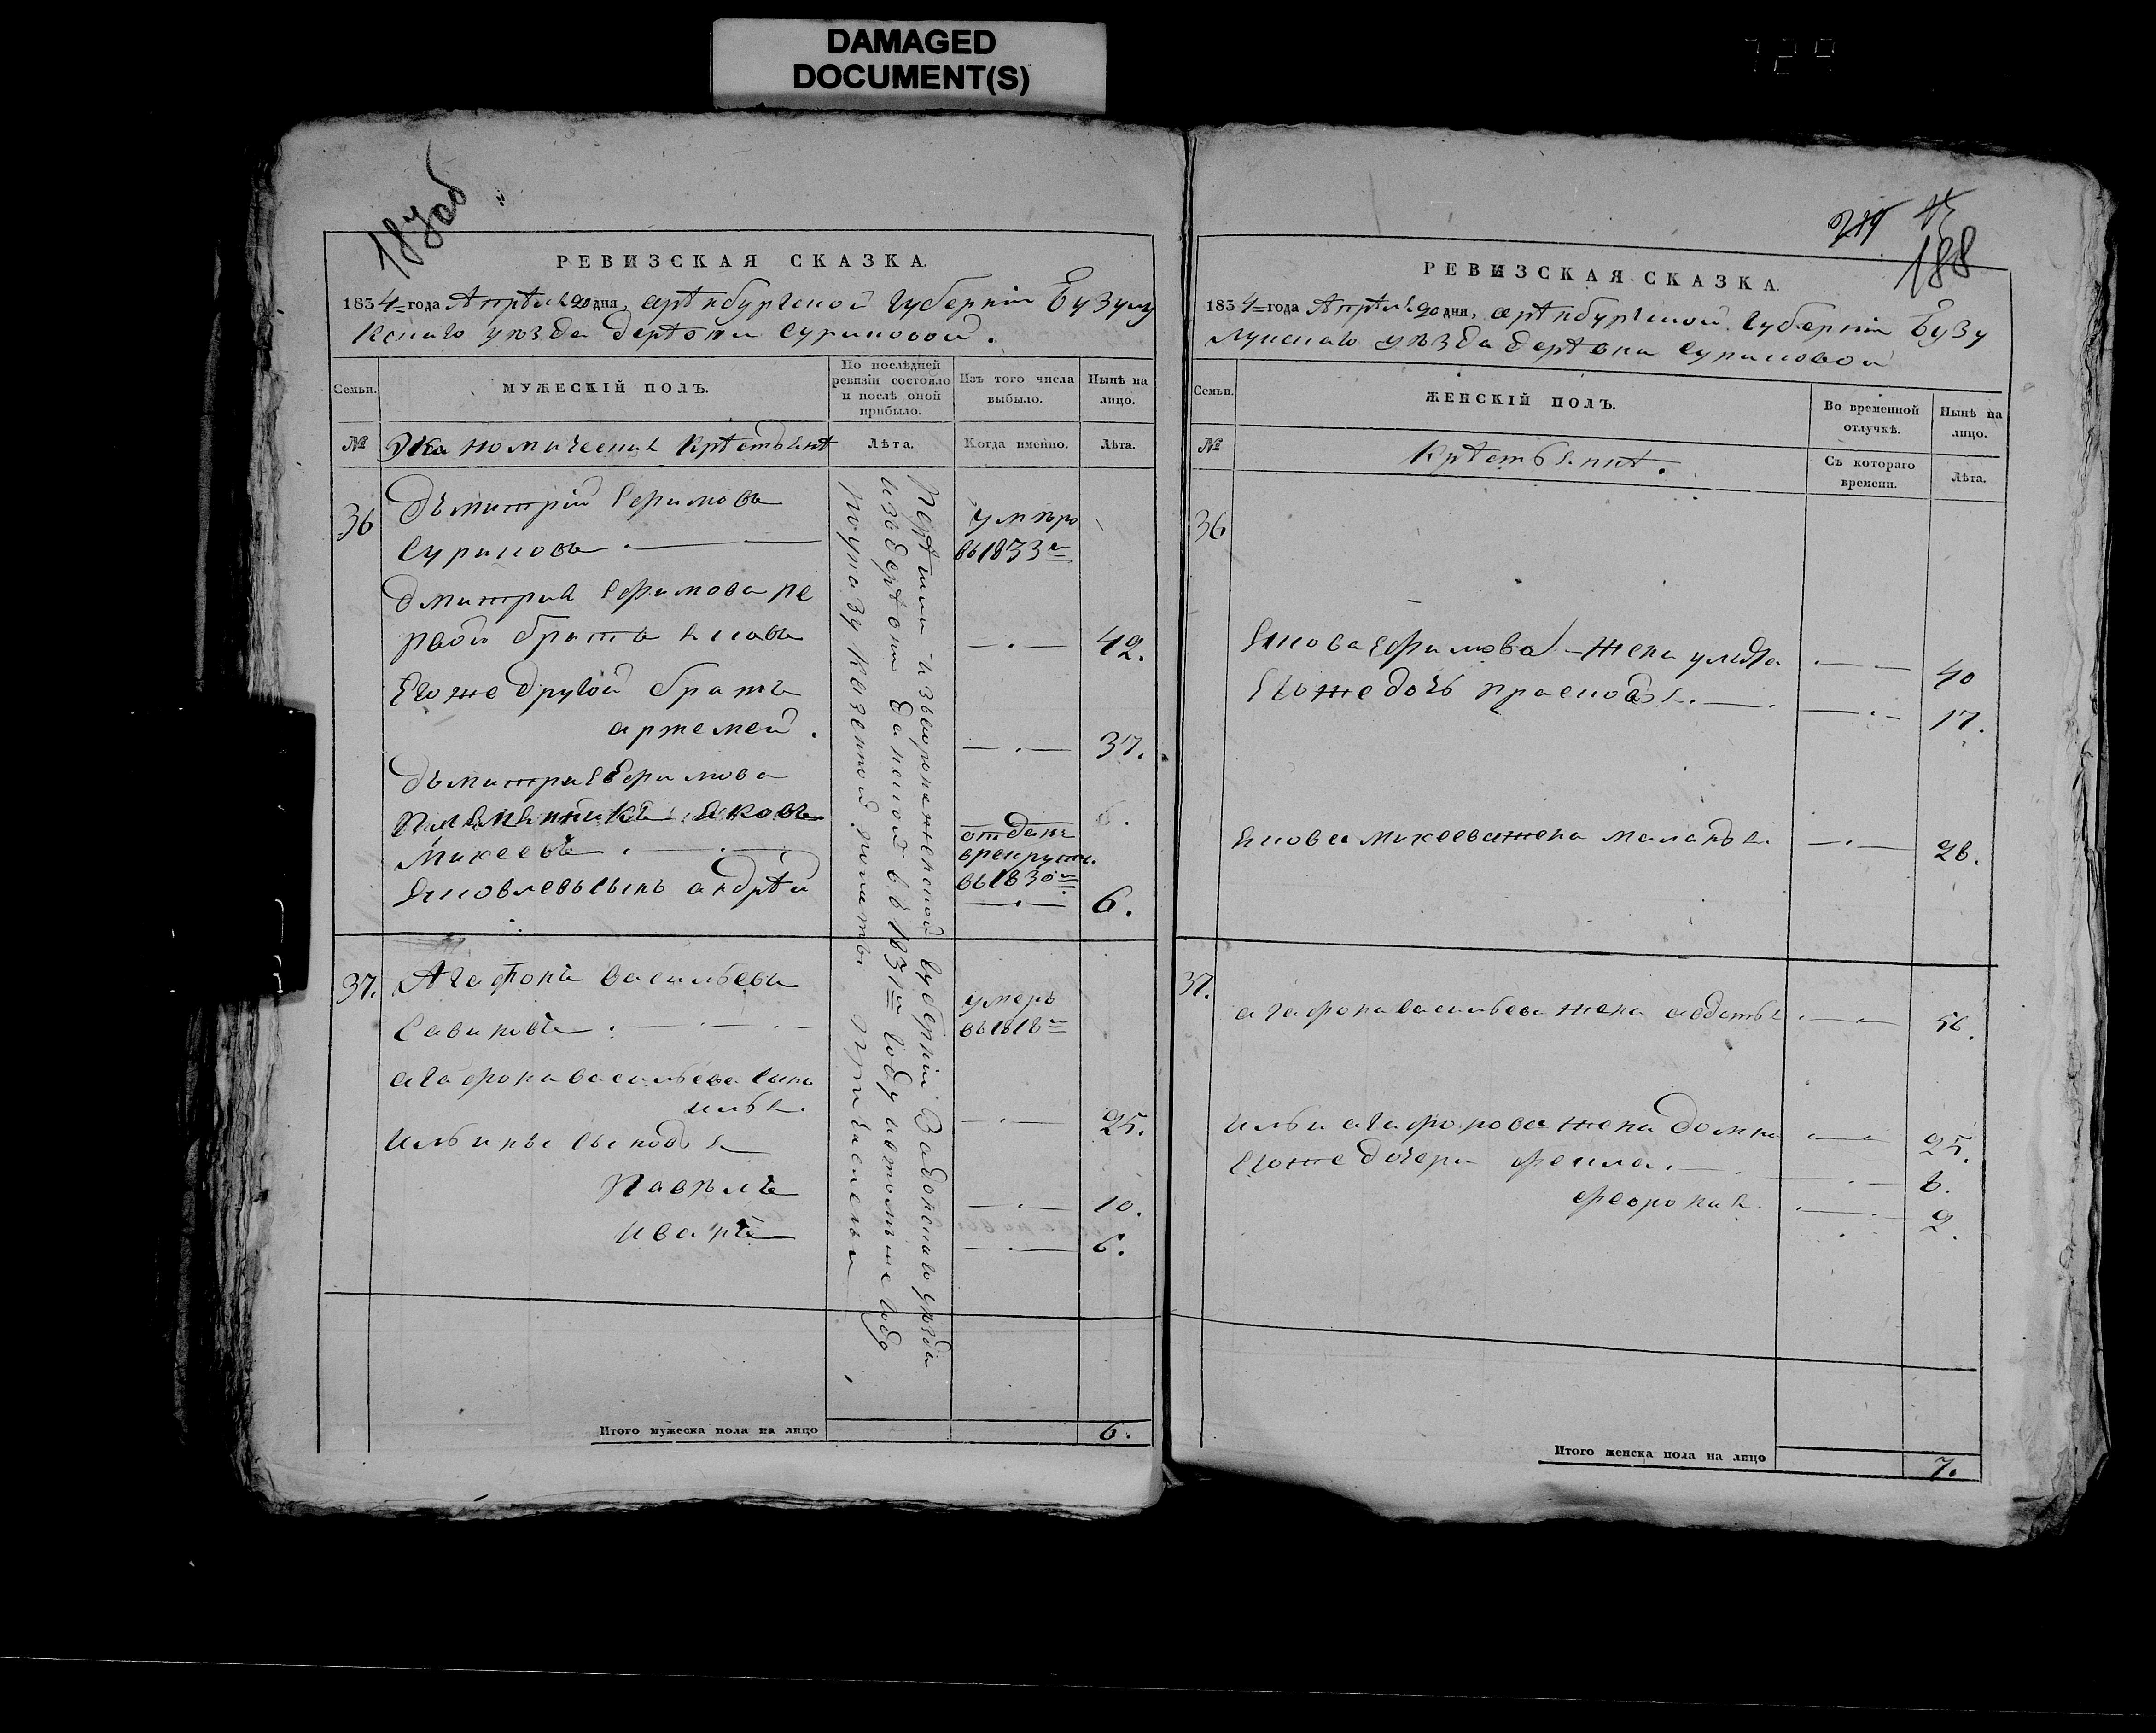 DAMAGED
DOCUMENT(S)
187об
РЕВИЗСКАЯ СКАЗКА.
1834 года Апреля 20 дня, орѣнбургской губерніи Бузулу
кскаго уѣзда дерѣвни Суриковой.
Семьи.
МУЖЕСКІЙ ПОЛЪ.
По послѣдней
ревизіи состояло
и послѣ оной
прибыло.
Изъ того числа
выбыло.
Нынѣ на
лицо.
№
Экономическия Крѣстьянѣ
Лѣта.
Когда именно.
Лѣта.
36
дъмитрій Ефимовъ
Суриковъ
умъръ
въ 1833 м
дмитрия Ефимова пе
рвой братъ яковъ
42.
Его же другой братъ
артемей.
37.
дъмитрия Ефимова
племянникъ яковъ
Михеевъ
отданъ
врекруты.
въ 1830 м
Яковлевъ сынъ андрѣй
6.
37.
Агафонъ васильевъ
Савиновъ
умеръ
въ 1818 м
агафона васильева сынъ
илья.
25.
ильины сыновья
Павѣлъ
10.
иванъ
6.
изъ дерѣвни
въ 1831 м году
по указу казенной палаты
Итого мужеска пола на лицо
6.
188
РЕВИЗСКАЯ СКАЗКА.
1834 года Апрѣля 20 дня, орѣнбургской губерніи Бузу
лукскаго уѣзда дерѣвни Суриковой
Семьи.
ЖЕНСКІЙ ПОЛЪ.
Во временной
отлучкѣ.
Нынѣ на
лицо.
№
Крѣстьянкѣ.
Съ котораго
времени.
Лѣта.
36
Якова Ефимова жена улита
40
Его же дочь прасковья.
17.
Якова михеева жена маланья.
28.
37.
агафона васильева жена авдотья
56.
ильи агафонова жена домна
25.
Его же дочери фекла.
8.
феврония.
2.
Итого женска пола на лицо
7.